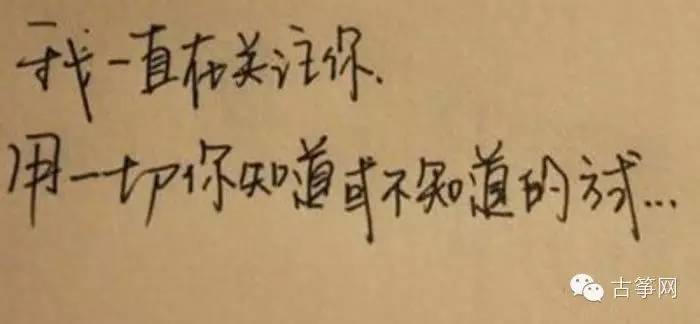 我一直在关注你.
用一切你知道或不知道的方式...
古筝网